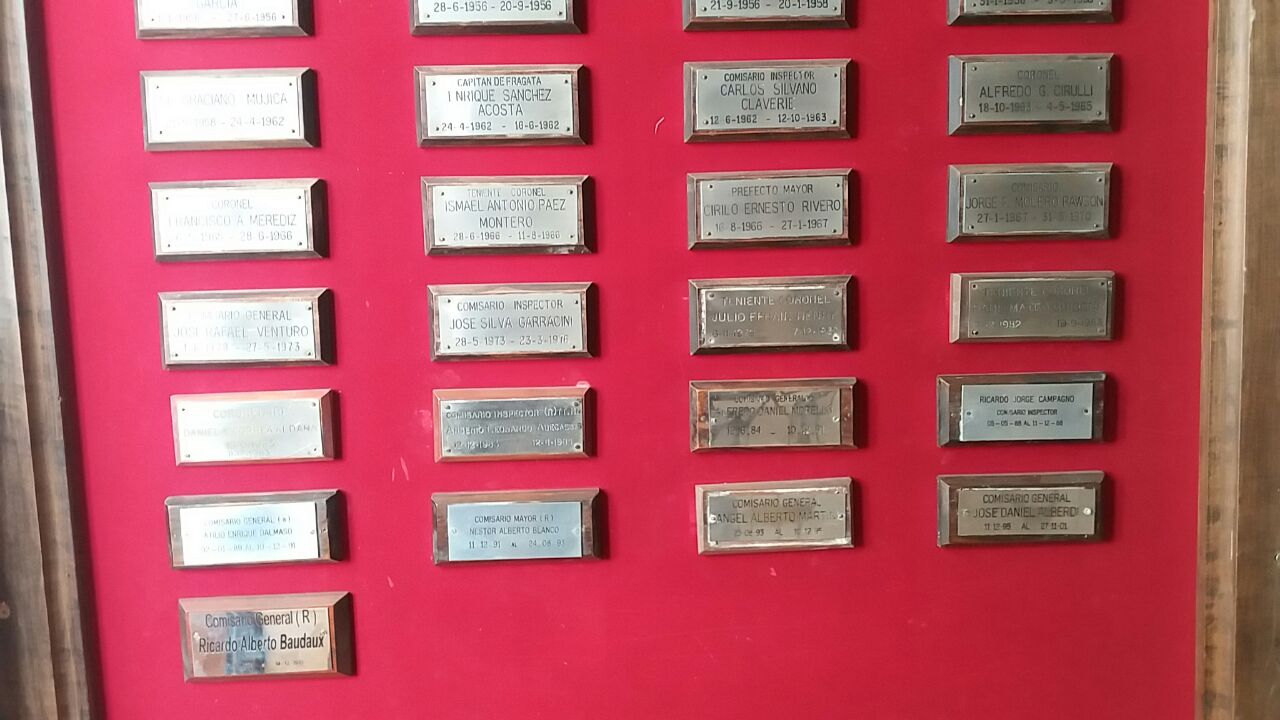 GARCIA
27-6-1956
28-6-1956 - 20-9-1956
21-9-1956 - 20-1-1958
GRACIANO MUJICA
1958 - 24-4-1962
CAPITAN DE FRAGATA
ENRIQUE SANCHEZ
ACOSTA
24-4-1962 - 16-6-1962
COMISARIO INSPECTOR
CARLOS SILVANO
CLAVERIE
12 6-1962 - 12-10-1963
CORONEL
ALFREDO G. CIRULLI
18-10-1963 - 4-5-1965
CORONEL
FRANCISCO A. MEREDIZ
1965 - 28-6-1966
TENIENTE CORONEL
ISMAEL ANTONIO PAEZ
MONTERO
28-6-1966 - 11-8-1966
PREFECTO MAYOR
CIRILO ERNESTO RIVERO
16-8-1966 - 27-1-1967
COMISARIO
JORGE MOLERO RAWSON
27-1-1967
COMISARIO GENERAL
JOSE RAFAEL VENTURO
27-5-1973
COMISARIO INSPECTOR
JOSE SILVA GARRACINI
28-5-1973 - 23-3-1976
TENIENTE CORONEL
JULIO
TENIENTE CORONEL
1982
DANIEL CORREA ALDANA
COMISARIO INSPECTOR (R)
LEONARDO
COMISARIO GENERAL
ALFREDO DANIEL
12.6.84
RICARDO JORGE CAMPAGNO
COMISARIO INSPECTOR
05-05-88 AL 11-12-88
COMISARIO GENERAL (R)
ATILIO ENRIQUE DALMASO
02-01-89 AL 10-12-91
COMISARIO MAYOR (R)
NESTOR ALBERTO BLANCO
11.12.91 AL 24.08.93
COMISARIO GENERAL
ANGEL ALBERTO MARTIN
AL
COMISARIO GENERAL
JOSE DANIEL ALBERDI
11 12-95 AL 27-11-01
Comisario General ( R )
Ricardo Alberto Baudaux